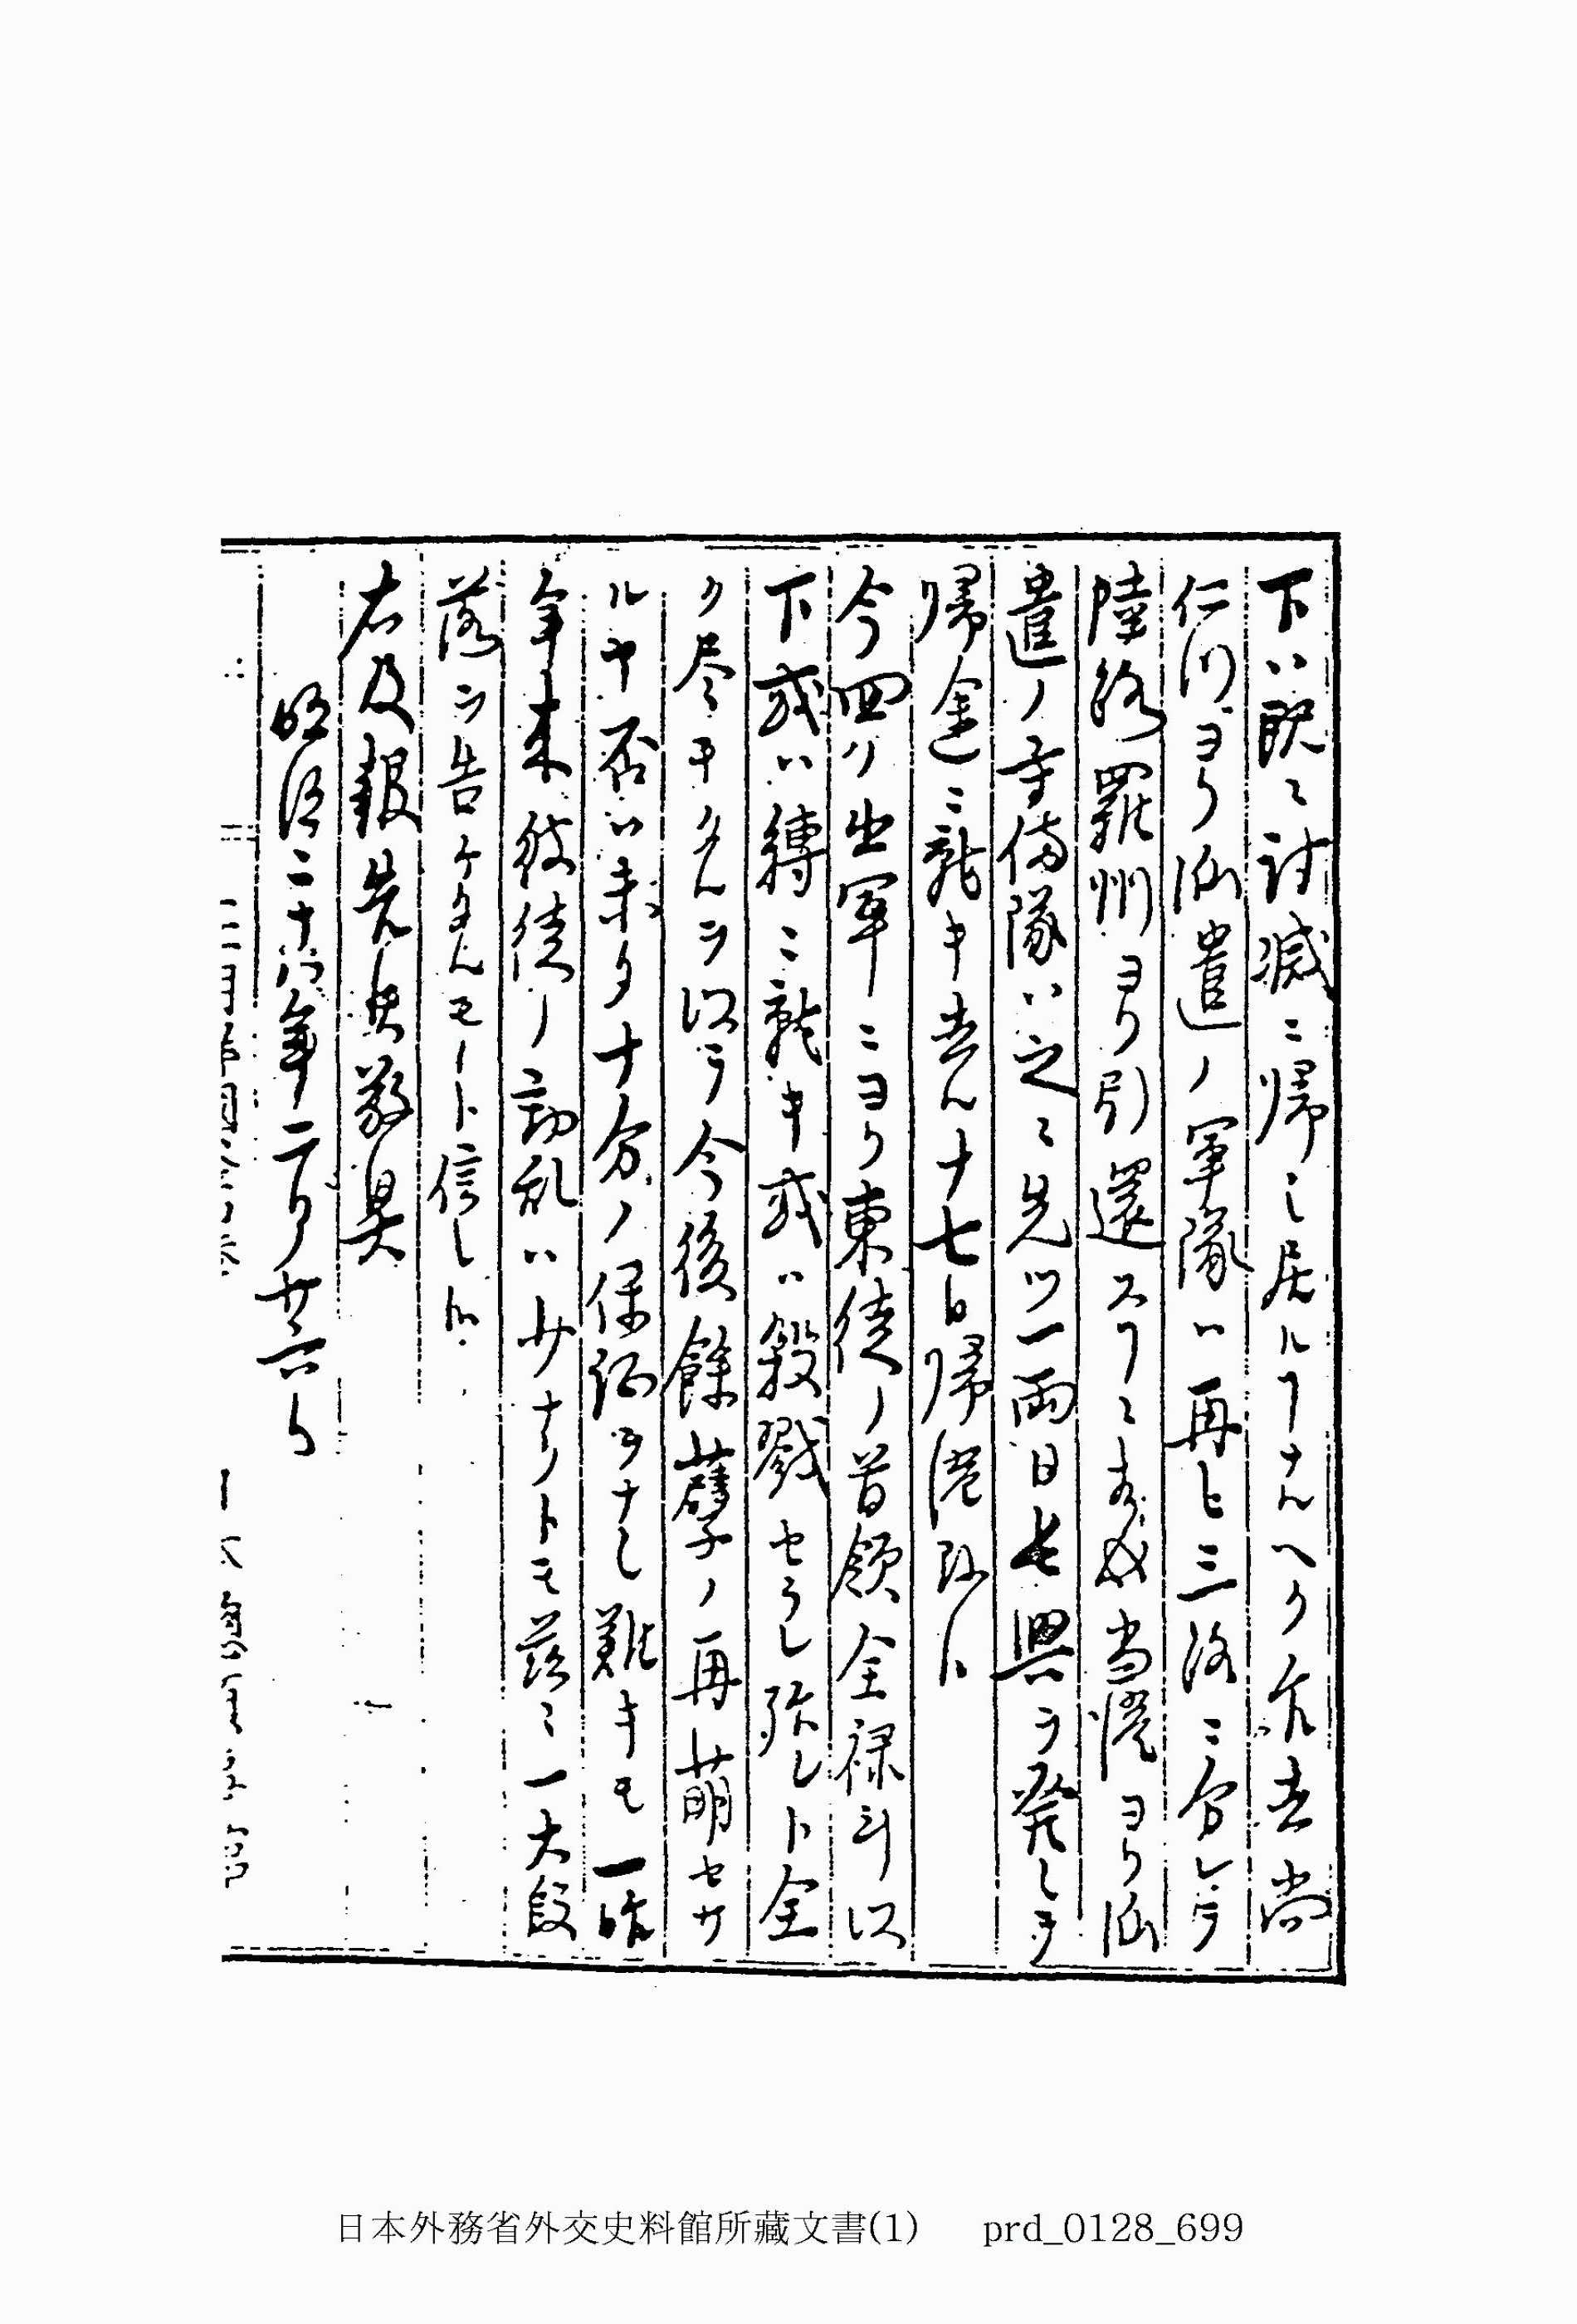 下ハ既ニ討滅ニ帰シ居ルヿナルヘク乍去尚
仁川ヨリ派遣ノ軍隊ハ再ヒ三路ニ分レテ
陸路羅州ヨリ引還スヿニ相成当港ヨリ派
遣ノ守備隊ハ之ニ先ツ一両日長興ヲ発シテ
帰途ニ就キ去ル十七日帰港致ト
今回ノ出軍ニヨリ東徒ノ首領全祿斗以
下或ハ縛ニ就キ或ハ殺戮セラレ殆レト全
ク尽キタルヲ以テ今後餘蘖ノ再萌セサ
ルヤ否ハ未タ十分ノ保証ヲナシ難キモ一昨
年来彼徒ノ動乱ハ少ナクトモ茲ニ一大段
落ヲ告ケタルモノト信シ
右及報告候敬具
明治二十八年二月廿六日
日本外務省外交史料館所藏文書(1) prd_0128_699